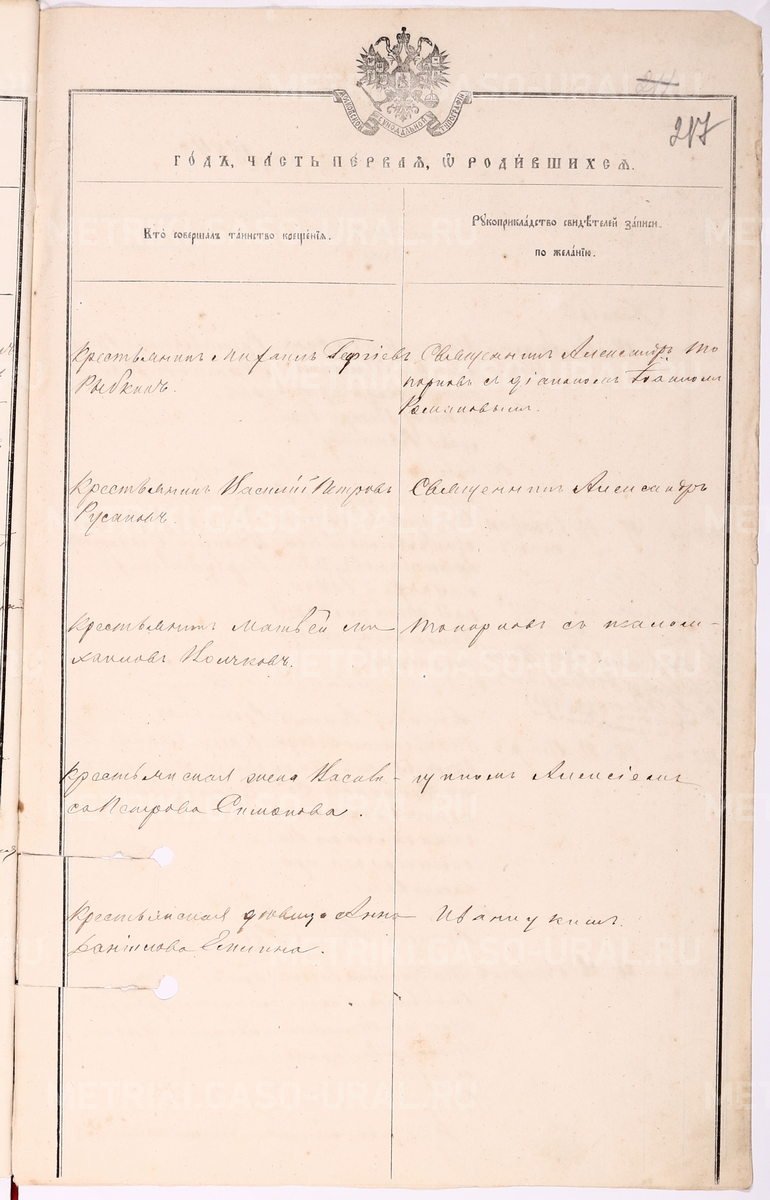 217
МОСКОВСКОЙ СѴНОДАЛЬНОЙ ТИПОГРАФІИ
ГО́ДЪ, ЧА́СТЬ ПЕ́РВАЯ, Ѡ РОДИ́ВШИХСЯ.
Кто̀ соверша́лъ та́инство креще́нія.
Рꙋкоприкла́дство свидѣ́телей за́писи
по жела́нію.
Крестьянинъ Михаилъ Георгіевъ
Рыбкинъ.
Священникъ Александръ То
порковъ съ діакономъ Іоанномъ
Романовымъ.
Крестьянинъ Василій Петровъ
Русаковъ.
Священникъ Александръ
Крестьянинъ Матвей Ми
хаиловъ Волчковъ.
Топорковъ съ псалом-
Крестьянская жена Васили-
са Петрова Симонова.
щикомъ Алексіемъ
Крестьянская девица Анна
Даніилова Елькина.
Иваницкимъ.
METRIKI.GASO-URAL.RU